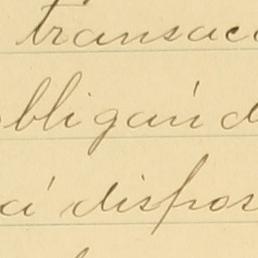 transacc
obligaın d
cá dispos